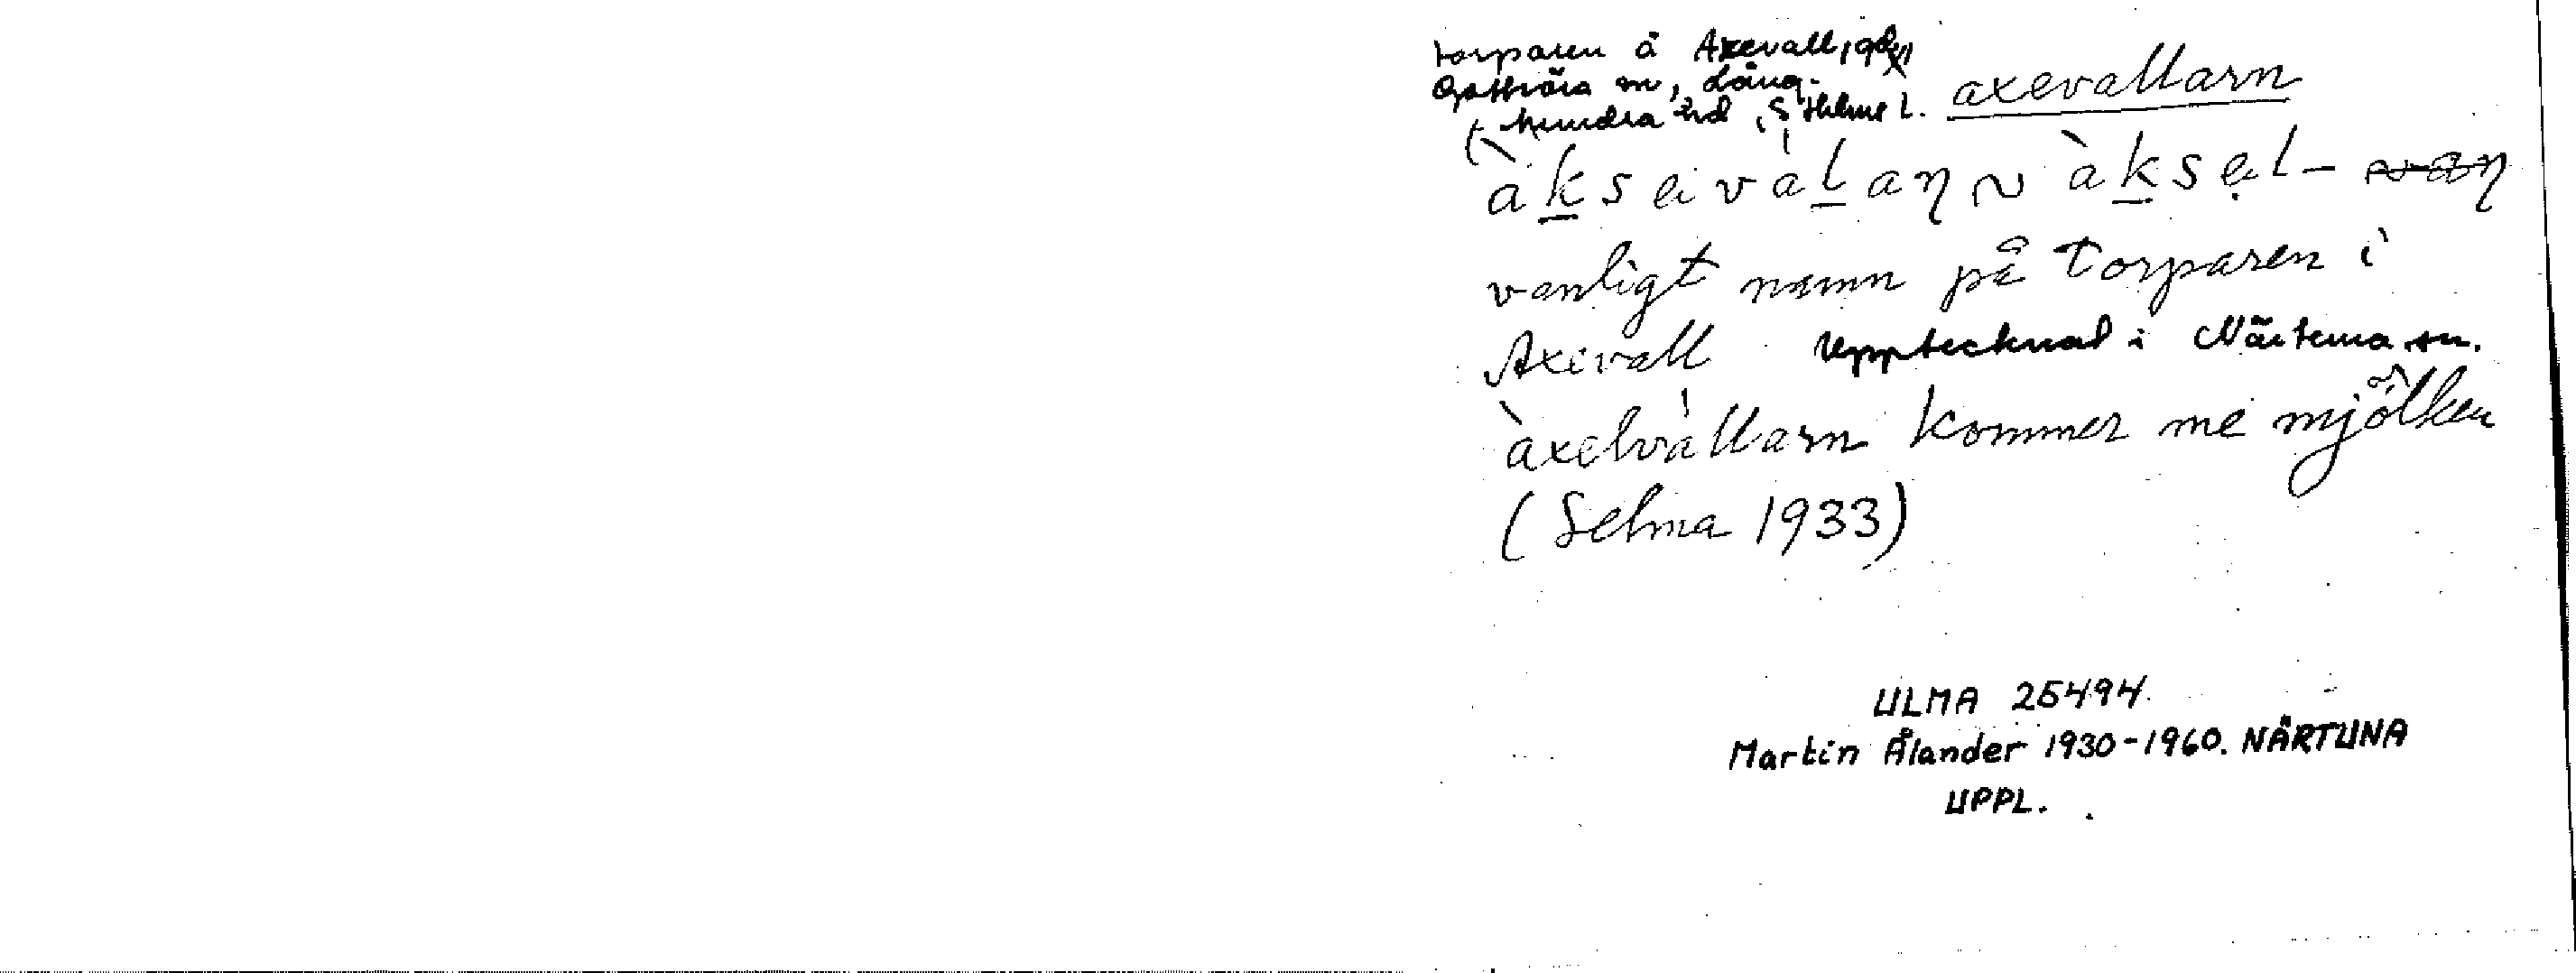 torparen å Axevall, gd,
Gottröra sn, Lång-
hundra hd, Sthlms l. axevallarn
àksevàlaɳ ~ àksel-
vanligt namn på torparen i
Axevall Upptecknad i Närtuna sn.
àxelvàllarn kommer me mjölken
(Selma 1933)
ULMA 25494
Martin Ålander 1930-1960. NÄRTUNA
UPPL.